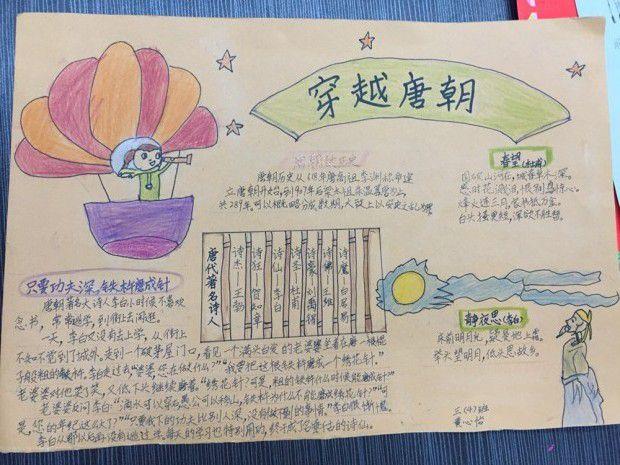 穿越唐朝
唐朝的历史
唐朝历史从618年唐高祖李渊称帝建
立唐朝开始,到907年后梁太祖朱温篡唐为止,
共289年。可以粗略分成数期,大致上以安史之乱为界
春望(杜甫)
国破山河在,城春草木深。
感时花溅泪,恨别鸟惊心。
烽火连三月,家书抵万金。
白头搔更短,浑欲不胜簪。
唐代著名诗人
诗杰 王勃
诗狂 贺知章
诗仙 李白
诗圣 杜甫
诗豪 刘禹锡
诗佛 王维
诗魔 白居易
静夜思(李白)
床前明月光,疑是地上霜。
举头望明月,低头思故乡。
只要功夫深,铁杵磨成针
唐朝著名大诗人李白小时候不喜欢
念书,常常逃学,到街上去闲逛。
一天,李白又没有去上学,从街上
不知不觉到了城外。走到一个破茅屋门口,看见一个满头白发的老婆婆坐着在磨一根棍
子般粗的铁杵。李白走过去"婆婆,您在做什么?""我要把这根铁杵磨成一个绣花针"。
老婆婆对他笑了笑,又低下头继续磨着。"绣花针?可是,粗的铁杵什么时候能磨成针?"
老婆婆反问李白:"滴水可以穿石,愚公可以移山,铁杵为什么不能磨成绣花针呢?""可
是,您的年纪这么大了?""只要我下的功夫比别人深,没有做不到的事情。"李白很惭愧,
李白从那以后再没有逃过学。每天的学习也特别用功,终于成了名垂千古的诗仙。
三(4)班
黄心怡